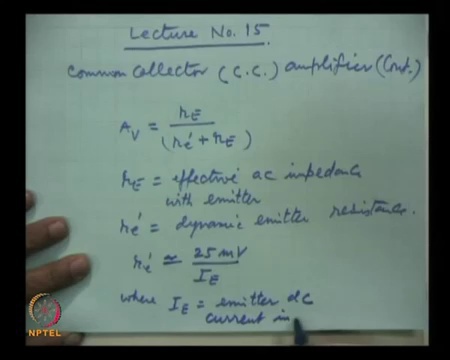 Lecture No. 15.
Common Collector (C.C.) amplifier (Cont.)
A_V = r_E / (r_e' + r_E)
r_E = effective ac impedance
with emitter
r_e' = dynamic emitter resistance.
r_e' ≃ 25 mV / I_E
where I_E = emitter dc
current in
NPTEL